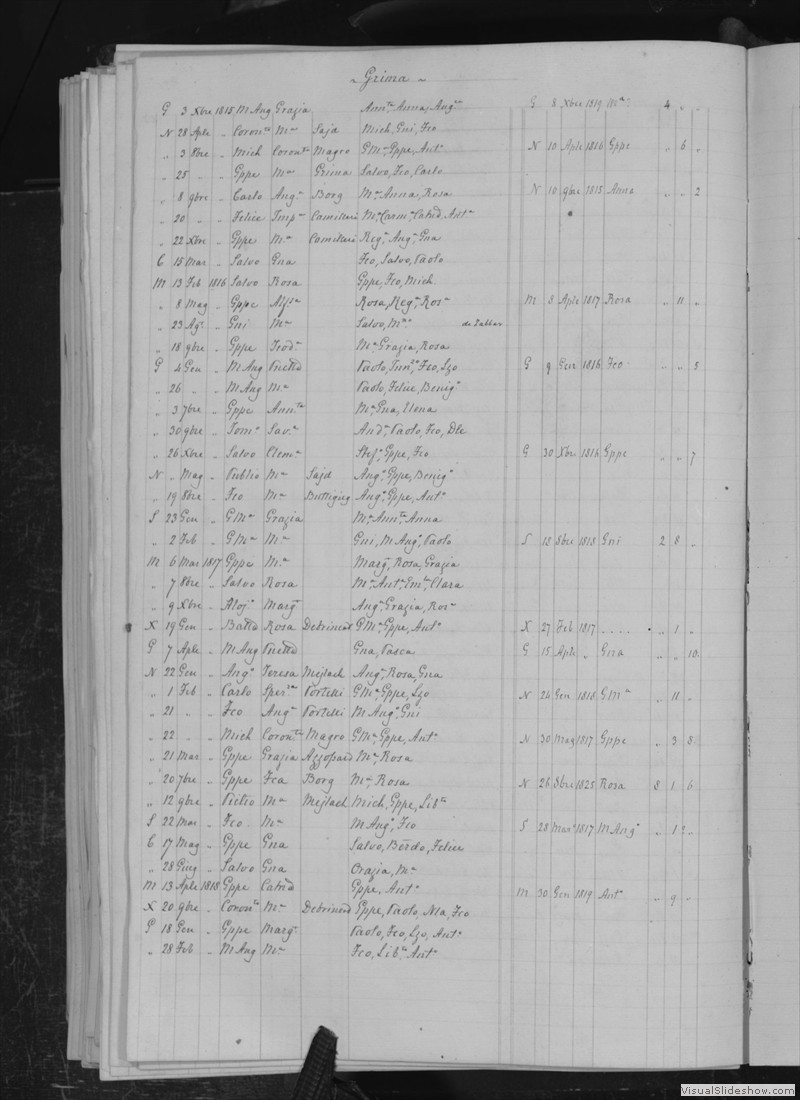 ~ Grima ~
G 3 Xbre 1815 M Ang Grazia Annta Anna, Angca G 8 Xbre 1819 Ma 4 " "
N 28 Aple " Coronta Ma Sajd Mich, Gni, Fco
" 3 8bre " Mich Coronta Magro GMa, Gppe, Anto N 10 Aple 1816 Gppe " 6 "
" 25 " " Gppe Ma Grima Salvo, Fco, Carlo
" 8 9bre " Carlo Anga Borg Ma, Anna, Rosa N 10 9bre 1815 Anna " " 2
" 20 " " Felice Impa Camilleri Ma, Carma, Catnd, Anta
" 22 Xbre " Gppe Ma Camilleri Rega, Anga, Gna
C 15 Mar " Salvo Gna Fco, Salvo, Paolo
M 13 Feb 1816 Salvo Rosa Gppe, Fco, Mich
" 8 Mag " Gppe Alfsa Rosa, Rega, Rosa M 8 Aple 1817 Rosa " 11 "
" 23 Ago " Gni Ma Salvo, Mo de Zabbar
" 18 9bre " Gppe Teoda Ma, Grazia, Rosa
G 4 Gen " M Ang Vincta Paolo, Innzo, Fco, Lzo G 9 Gen 1816 Fco " " 5
" 26 " " M Ang Ma Paolo, Felice, Benigo
" 3 7bre " Gppe Annta Ma, Gna, Elena
" 30 9bre " Tomo Sava Anda, Paolo, Fco, Dle
" 26 Xbre " Salvo Clema Stefo, Gppe, Fco G 30 Xbre 1816 Gppe " " 7
N " Mag " Publio Ma Sajd Ango, Gppe, Benigo
" 19 8bre " Fco Ma Buttigieg Ango, Gppe, Anto
S 23 Gen " GMa Grazia Ma, Annta, Anna
" 2 Feb " GMa Ma Gni, M Ango, Paolo S 18 8bre 1818 Gni 2 8 "
M 6 Mar 1817 Gppe Ma Marga, Rosa, Grazia
" 7 8bre " Salvo Rosa Ma, Anta, Ema, Clara
" 9 Xbre " Alojo Marga Anga, Grazia, Rosa
X 19 Gen " Batta Rosa Debrincat GMa, Gppe, Anto X 27 Feb 1817 ..... " 1 "
G 7 Aple " M Ang Vincta Gna, Pasca G 15 Aple " Gna " " 10
N 22 Gen " Ango Teresa Mejlach Anga, Rosa, Gna
" 1 Feb " Carlo Speraa Portelli GMa, Gppe, Lzo N 24 Gen 1818 GMa " 11 "
" 21 " " Fco Anga Portelli M Ango, Gni
" 22 " " Mich Coronta Magro GMa, Gppe, Anto N 30 Mag 1817 Gppe " 3 8
" 21 Mar " Gppe Grazia Azzopard Ma, Rosa
" 20 7bre " Gppe Fca Borg Ma, Rosa N 26 8bre 1825 Rosa 8 1 6
" 12 9bre " Pietro Ma Mejlach Mich, Gppe, Liba
S 22 Mar " Fco Ma M Ango, Fco S 28 Mar 1817 M Ango " 1 "
C 17 Mag " Gppe Gna Salvo, Berdo, Felice
" 28 Giug " Salvo Gna Orazia, Ma
M 13 Aple 1818 Gppe Catrnd Gppe, Anto M 30 Gen 1819 Anto " 9 "
X 20 9bre " Coronto Ma Debrincad Gppe, Paolo, Nla, Fco
G 18 Gen " Gppe Marga Paolo, Fco, Lzo, Anto
" 28 Feb " M Ang Ma Fco, Liba, Anto
VisualSlideshow.com